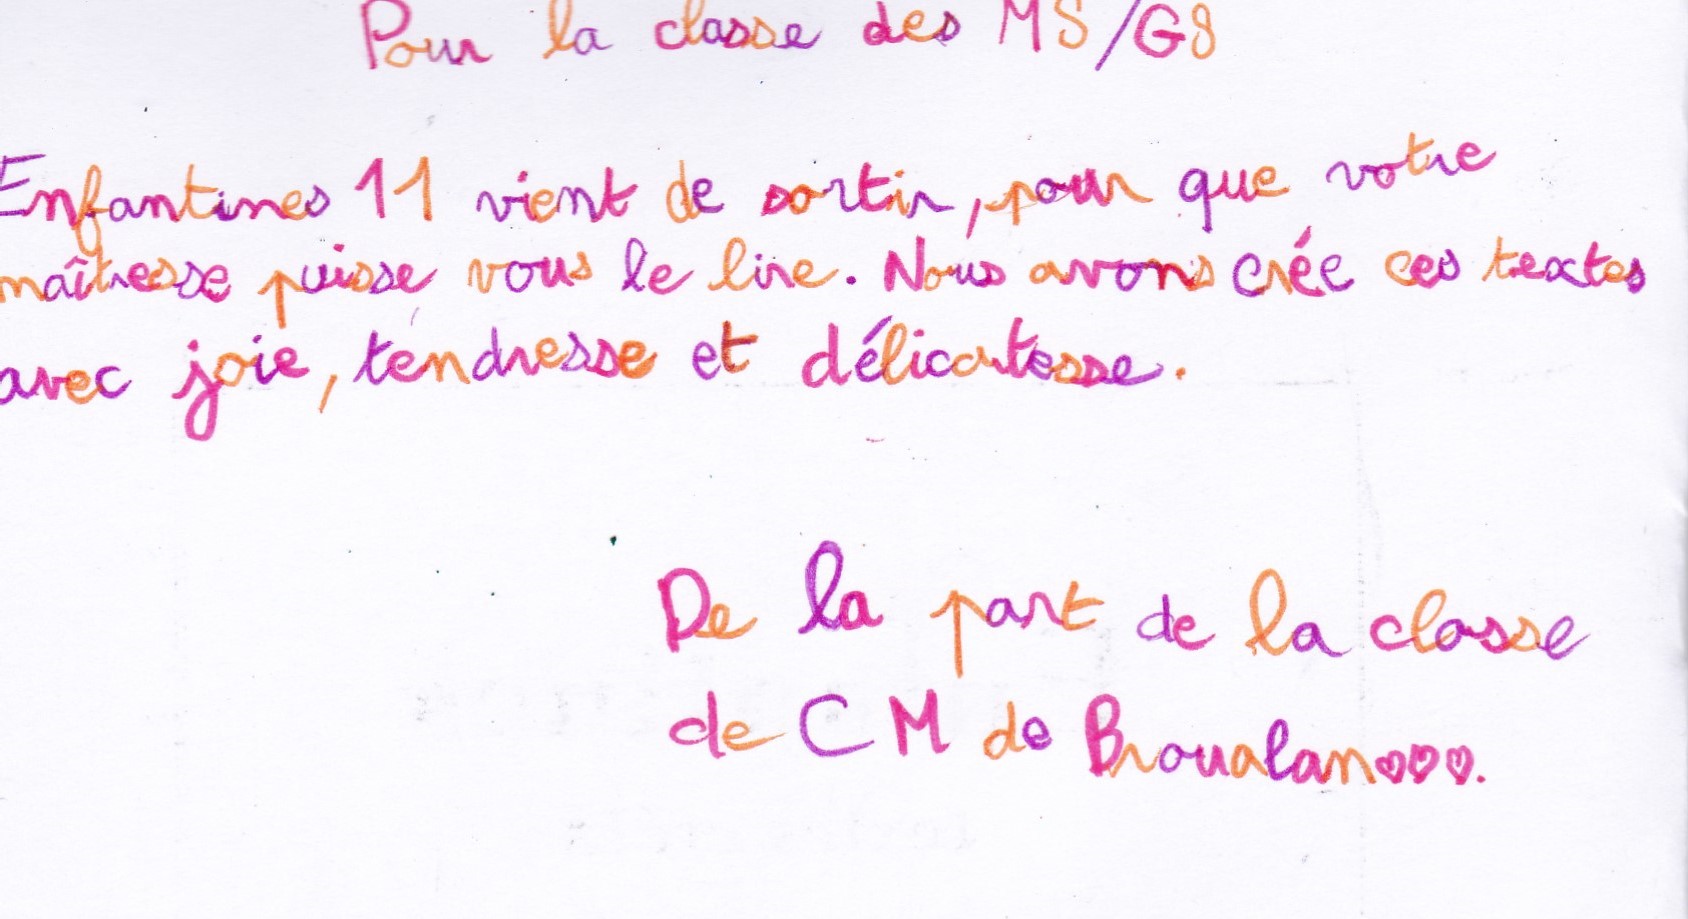 Pour la classe des MS/GS
Enfantines 11 vient de sortir, pour que votre
maîtresse puisse vous le lire. Nous avons crée ces textes
avec joie, tendresse et délicatesse.
De la part de la classe
de CM de Broualan♡♡♡.